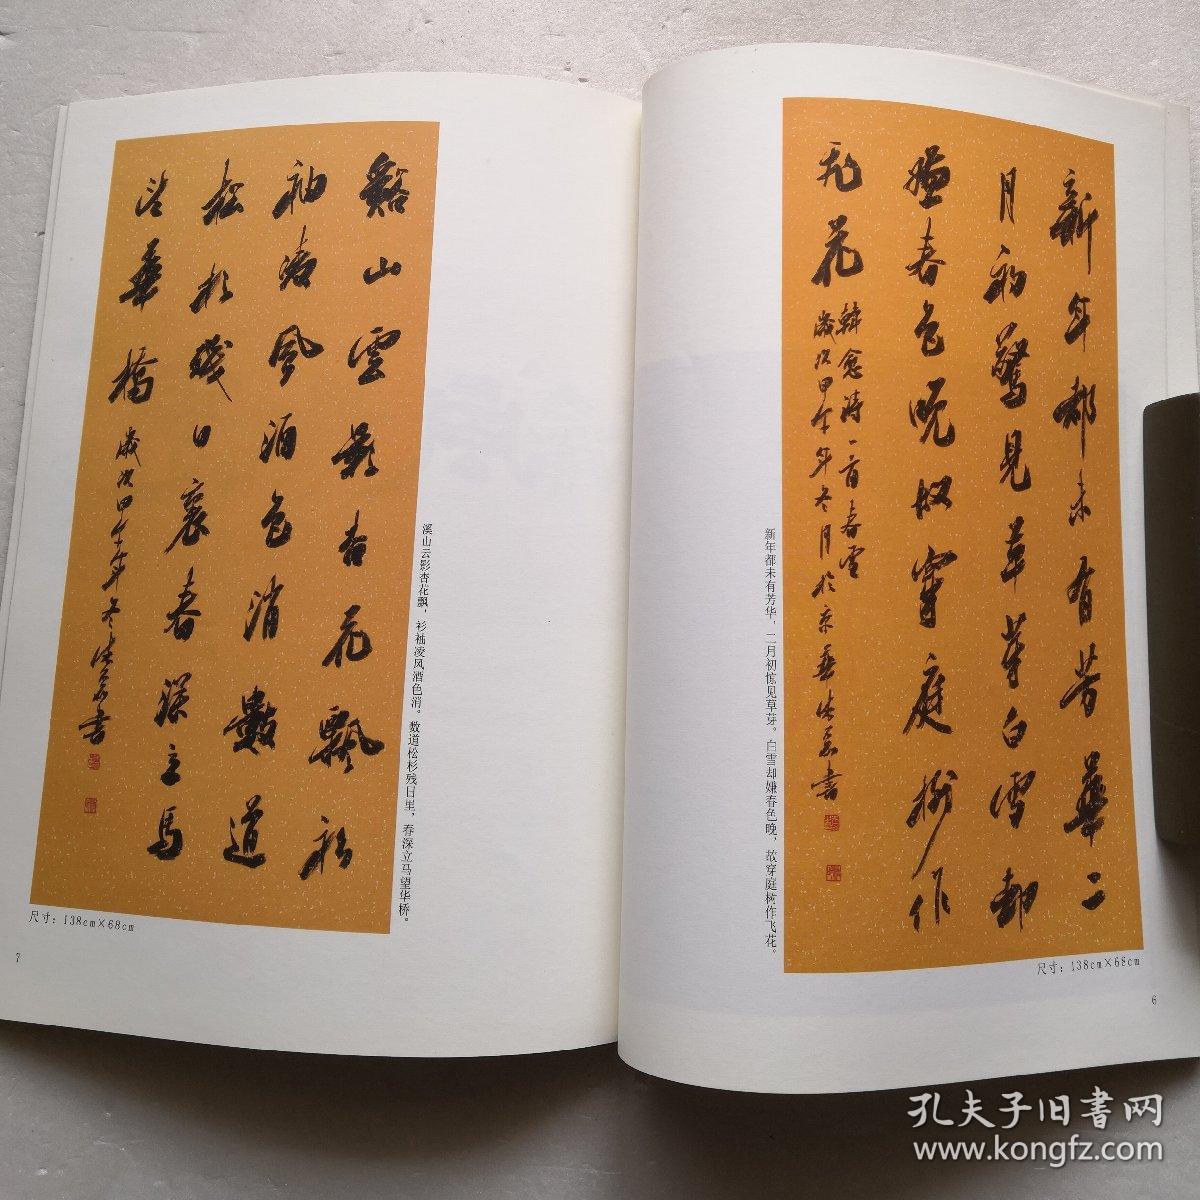 新年都未有芳華二
月初驚見草芽白雪却
嫌春色晚故穿庭樹作
飛花
韓愈詩一首春雪
歲次甲午年冬月於京華書
新年都未有芳华，二月初惊见草芽。白雪却嫌春色晚，故穿庭树作飞花。
尺寸：138cm×68cm
6
谿山雲影杏花飄衫
袖凌風酒色消數道
松杉殘日裏春深立馬
望華橋
歲次甲午年冬書
溪山云影杏花飘，衫袖凌风酒色消。数道松杉残日里，春深立马望华桥。
尺寸：138cm×68cm
7
孔夫子旧書网
www.kongfz.com